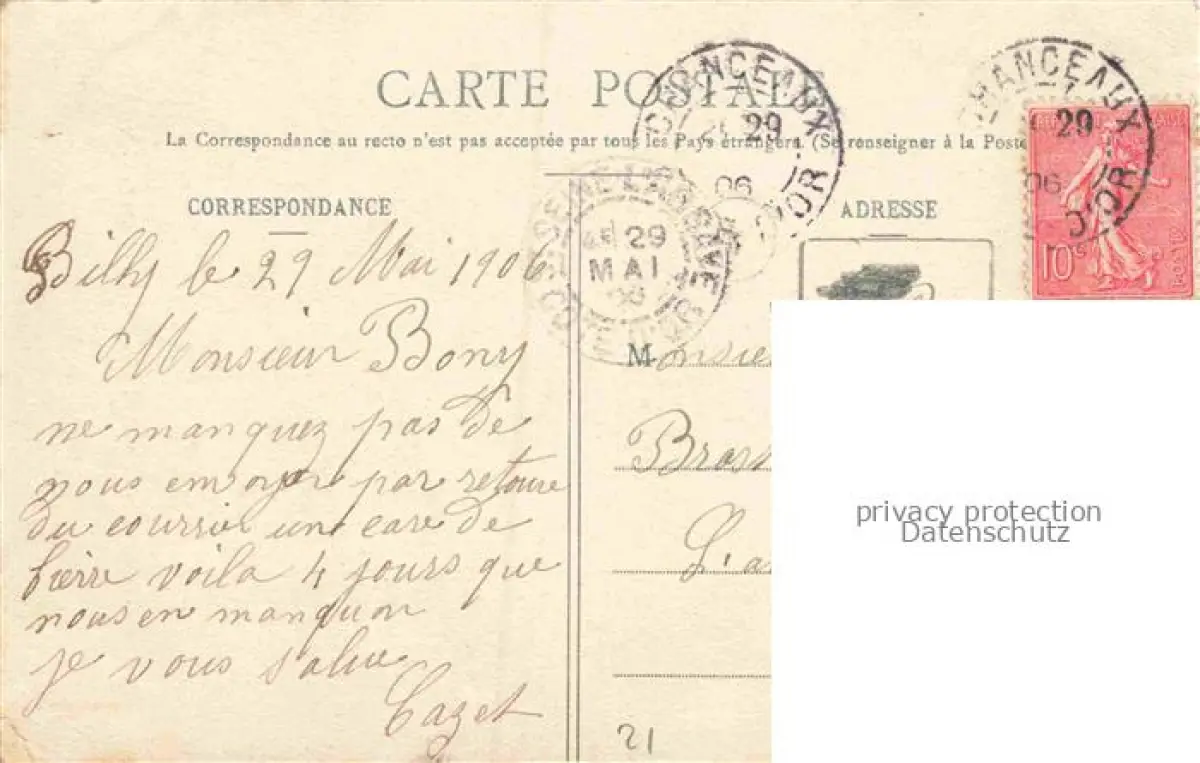 CARTE POSTALE
La Correspondance au recto n'est pas acceptée par tous les Pays étrangers. (Se renseigner à la Poste
CORRESPONDANCE
ADRESSE
CHANCEAUX
29
06
D'OR
CHANCEAUX
29
06
D'OR
10c
29
MAI
06
Billy le 29 Mai 1906
Monsieur Bony
ne manquez pas de
nous envoyer par retoure
du courrier une care de
bierre voila 4 jours que
nous en manquon
je vous salue
Cazet
Monsie
Bras
L'a
21
privacy protection
Datenschutz